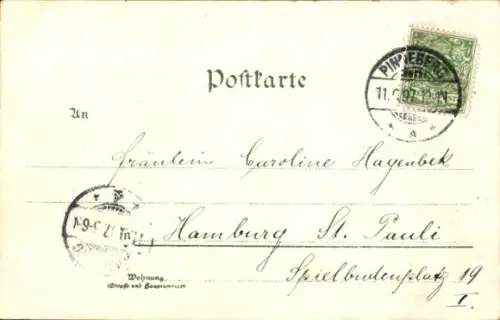 PINNEBERG
11. 97. 12-1N
Postkarte
An
Fräulein Caroline Hagenbek
Hamburg St. Pauli
Spielbudenplatz 19
I.
Wohnung
(Straße und Hausnummer)